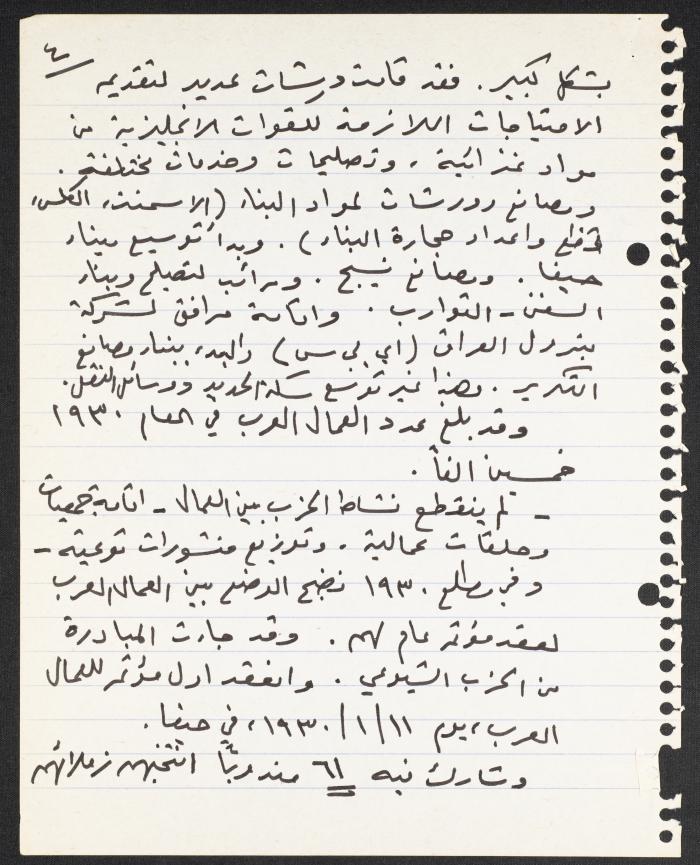 ٤
بشكل كبير . فقد قامت ورشات عديد لتقديم
الاحتياجات اللازمة للقوات الانجليزية من
مواد غذائية ، وتصليحات وخدمات مختلفة .
ومصانع وورشات لمواد البناء (الاسمنت، الكلس،
قطع واعداد حجارة البناء) . وبدأ توسيع ميناء
حيفا . ومصانع نسيج . ومرائب لتصليح وبناء
السفن - القوارب . واقامة مرافق لشركة
بترول العراق (آي بي سي) والبدء ببناء مصانع
التكرير . وهذا غير توسع سكة الحديد ووسائل النقل .
وقد بلغ عدد العمال العرب في العام ١٩٣٠
خمسين الفاً .
- لم ينقطع نشاط الحزب بين العمال - اقامة جمعيات
وحلقات عمالية . وتوزيع منشورات توعية -
وفي مطلع ١٩٣٠ نضج الوضع بين العمال العرب
لعقد مؤتمر عام لهم . وقد جاءت المبادرة
من الحزب الشيوعي . وانعقد اول مؤتمر للعمال
العرب ، يوم ١١/١/١٩٣٠ ، في حيفا .
وشارك فيه ٦١ مندوباً انتخبهم زملائهم